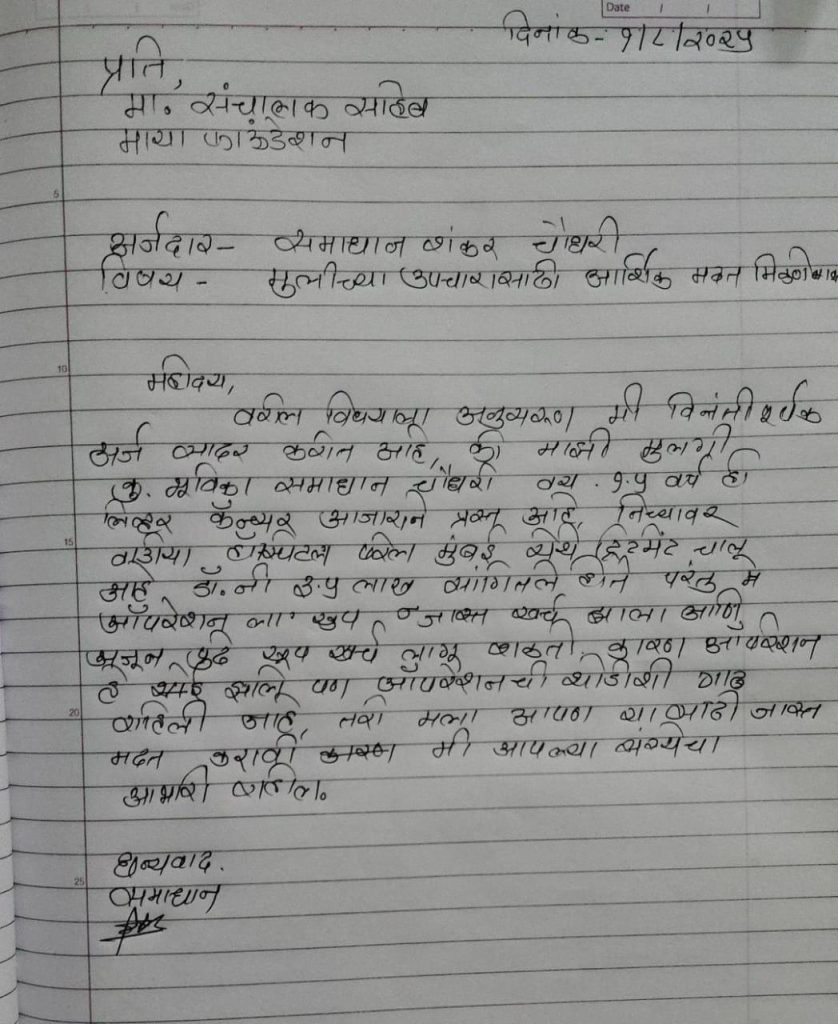 Date / /
दिनांक - १/८/२०२५
प्रति,
मा. संचालक साहेब
माया फाऊंडेशन
5
अर्जदार - समाधान शंकर चौधरी
विषय - मुलीच्या उपचारासाठी आर्थिक मदत मिळणेबाब
10
महोदय,
वरील विषयाला अनुसरुण मी विनंतीपूर्वक
अर्ज सादर करीत आहे, की माझी मुलगी
कु. भूविका समाधान चौधरी वय १.५ वर्ष ही
लिव्हर कॅन्सर आजाराने ग्रस्त आहे, तिच्यावर
15
वाडीया हॉस्पिटल परेल मुंबई येथे ट्रिटमेंट चालू
आहे, डॉ. नी ३.५ लाख सांगितले होते परंतु
ऑपरेशन ला खुप जास्त खर्च झाला आणि
अजून पुढे खूप खर्च लागू शकतो. कारण ऑपरेशन
हे झाले पण ऑपरेशनची थोडीशी गाठ
20
राहिली आहे, तरी मला आपण यासाठी जास्त
मदत करावी कारण मी आपल्या संस्थेचा
आभारी राहील.
धन्यवाद.
25
समाधान